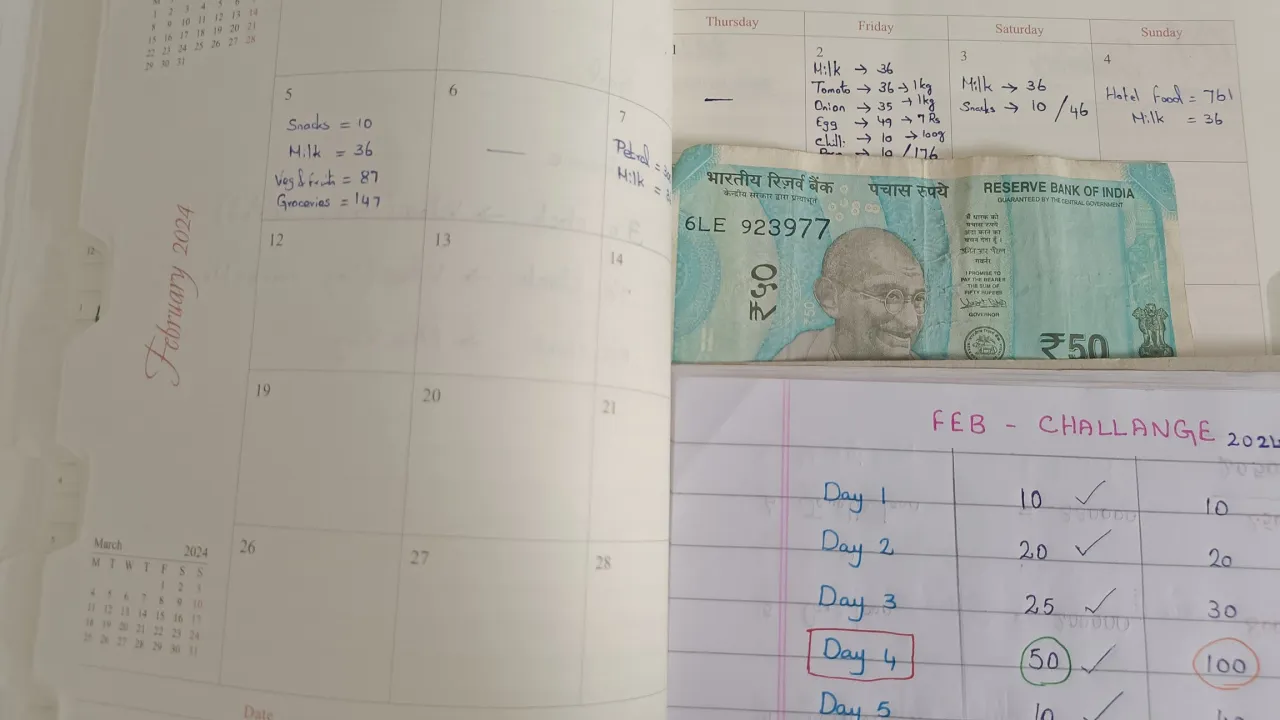 M T W T F S
1 2 3 4 5 6 7
8 9 10 11 12 13 14
15 16 17 18 19 20 21
22 23 24 25 26 27 28
29 30 31
5
Snacks = 10
Milk = 36
Veg & fruits = 87
Groceries = 147
6
—
7
Petrol =
Milk =
February 2024
12
13
14
19
20
21
26
27
28
March 2024
M T W T F S S
1 2 3
4 5 6 7 8 9 10
11 12 13 14 15 16 17
18 19 20 21 22 23 24
25 26 27 28 29 30 31
Date
Thursday Friday Saturday Sunday
1
—
2
Milk → 36
Tomato → 36 → 1kg
Onion → 35 → 1kg
Egg → 49 → 7 Rs
Chilli → 10 → 100g
→ 10 / 176
3
Milk → 36
Snacks → 10 / 46
4
Hotel food = 761
Milk = 36
भारतीय रिज़र्व बैंक पचास रुपये RESERVE BANK OF INDIA
केन्द्रीय सरकार द्वारा प्रत्याभूत GUARANTEED BY THE CENTRAL GOVERNMENT
6LE 923977
₹५०
मैं धारक को
पचास रुपये
अदा करने का
वचन देता हूँ।
I PROMISE TO
PAY THE BEARER
THE SUM OF
FIFTY RUPEES
GOVERNOR
₹50
FEB - CHALLANGE 2024
Day 1 10 ✓ 10
Day 2 20 ✓ 20
Day 3 25 ✓ 30
Day 4 50 ✓ 100
Day 5 10 ✓